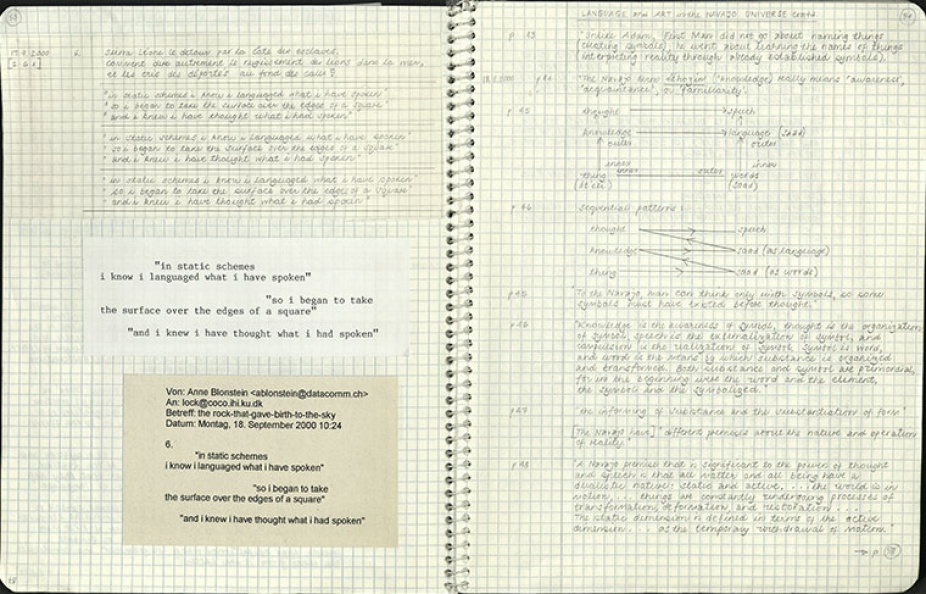 6.
Sierra Leone le detour par la Côte des esclaves.
comment dire autrement le rugissement des lions dans la mer,
et les cris des déportés au fond des cales?
"in static schemes i know i languaged what i have spoken"
"so i began to take the surface over the edges of a square"
"and i knew i have thought what i had spoken"
"in static schemes i know i languaged what i have spoken"
"so i began to take the surface over the edges of a square"
"and i knew i have thought what i had spoken"
"in static schemes i know i languaged what i have spoken"
"so i began to take the surface over the edges of a square"
"and i knew i have thought what i had spoken"
"in static schemes
i know i languaged what i have spoken"
"so i began to take
the surface over the edges of a square"
"and i knew i have thought what i had spoken"
Von: Anne Blonstein <ablonstein@datacomm.ch>
An: lock@coco.ihi.ku.dk
Betreff: the rock-that-gave-birth-to-the-sky
Datum: Montag, 18. September 2000 10:24
6.
"in static schemes
i know i languaged what i have spoken"
"so i began to take
the surface over the edges of a square"
"and i knew i have thought what i had spoken"
LANGUAGE and ART in the NAVAJO UNIVERSE contd.
p 43 "Unlike Adam, First Man did not go about naming things
(creating symbols); he went about learning the names of things
(interpreting reality through already established symbols)."
"The Navajo term (knowledge) really means 'awareness',
'acquaintance', or 'familiarity'.
p 45 thought speech
knowledge language (saad)
outer outer
inner inner
inner outer
thing words
(saad)
p 46 Sequential patterns:
thought speech
knowledge saad (as language)
thing saad (as words)
p 45 "To the Navajo, man can think only with symbols, so some
symbols must have existed before thought."
p 46 "Knowledge is the awareness of symbol, thought is the organization
of symbol, speech is the externalization of symbol, and
compulsion is the realization of symbol. Symbol is word,
and word is the means by which substance is organized
and transformed. Both substance and symbol are primordial,
for in the beginning were the word and the element,
the symbol and the symbolized."
p 47 "the informing of substance and the substantiation of form"
[The Navajo have] "different premises about the nature and operation
of reality."
p 48 "A Navajo premise that is significant to the power of thought
and speech is that all matter and all being have a
dualistic nature: static and active. ... the world is in
motion, ... things are constantly undergoing processes of
transformation, deformation, and restoration ....
The static dimension is defined in terms of the active
dimension ... as the temporary withdrawal of motion."
→ p